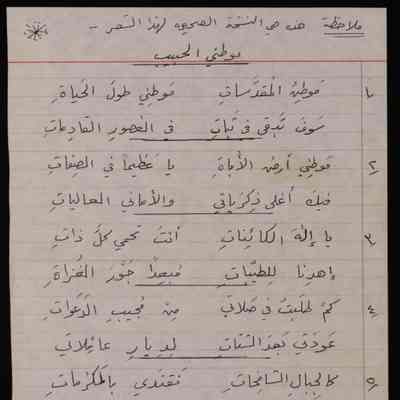 ملاحظة هذه هي النسخة الصحيحة لهذا الشعر -
موطني الحبيب
١ مَوطِنُ الْمُقَدَّساتِ مَوطِني طولَ الحَياةِ
سَوفَ تَبقى في ثَباتِ في العُصورِ القادِماتِ
٢ مَوطِني أرضُ الأُباةِ يا عَظيماً في الصِفاتِ
فيكَ أغلى ذِكرَياتي والأماني الغالياتِ
٣ يا إلهَ الكائِناتِ أنتَ تحمي كلَّ ذاتِ
إهدِنا لِلطَيِّباتِ مُبعِداً جَوْرَ الغُزاةِ
٤ كَمْ طَلَبتُ في صَلاتي مِنْ مُجيبِ الدَعَواتِ
عَودَتي بَعدَ الشَتاتِ لِدِيارِ عائِلاتي
٥ كالجِبالِ الشامِخاتِ نَقتَدي بالمَكرُماتِ